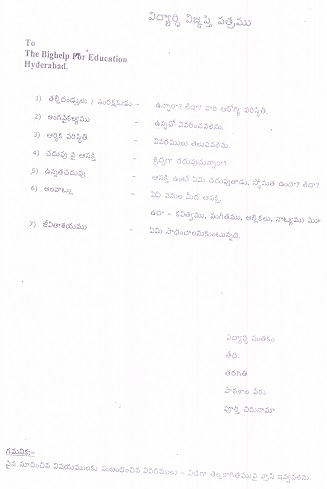 విద్యార్థి విజ్ఞప్తి పత్రము
To
The Bighelp For Education
Hyderabad.
1) తల్లిదండ్రులు / సంరక్షకుడు - ఉన్నారా? లేదా? వారి ఆరోగ్య పరిస్థితి.
2) అంగవైకల్యము - ఉన్నచో వివరించవలెను.
3) ఆర్థిక పరిస్థితి - వివరములు తెలుపవలెను.
4) చదువు పై ఆసక్తి - శ్రద్ధగా చదువుచున్నారా?
5) ఉన్నతచదువు - ఆసక్తి ఉంటే ఏమి చదువుతాడు, స్తోమత ఉందా? లేదా?
6) అలవాట్లు - ఏఏ పనుల మీద ఆసక్తి.
ఉదా - కవిత్వము, సంగీతము, అల్లికలు, నాట్యము మొ
7) జీవితాశయము - ఏమి సాధించాలనుకుంటున్నది.
విద్యార్థి సంతకం
తేది:
తరగతి
పాఠశాల పేరు
పూర్తి చిరునామా
గమనిక:-
పైన సూచించిన విషయములకు సంబంధించిన వివరములు - విడిగా తెల్లకాగితముపై వ్రాసి ఇవ్వవలెను.